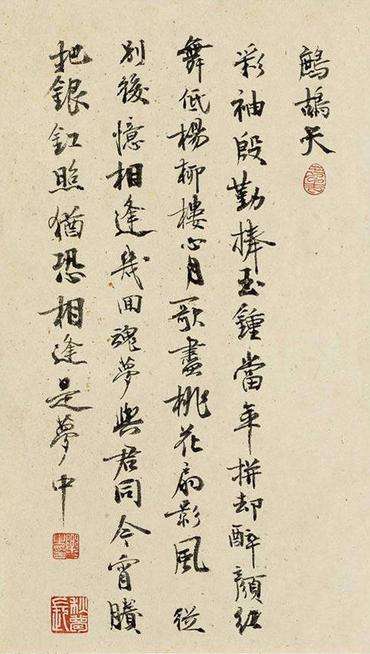 鷓鴣天
彩袖殷勤捧玉鍾當年拼却醉顏紅
舞低楊柳樓心月歌盡桃花扇影風從
別後憶相逢幾回魂夢與君同今宵賸
把銀釭照猶恐相逢是夢中